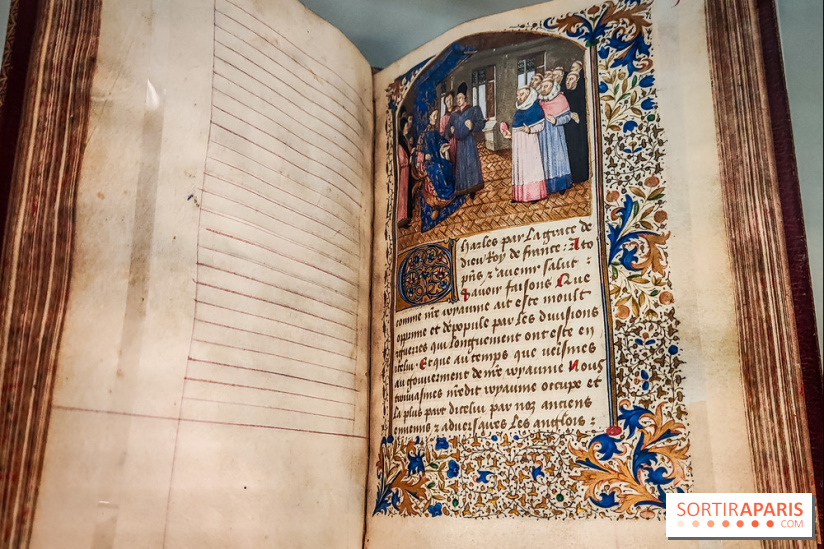 Charles par la grace de
dieu Roy de france : A to
pn̄s z avenir salut :
savoir faisons Que
comme nr̄e royaume ait este moult
opprime et depopule par les divisions
z guerres qui longuement ont este en
icelui . Et que au temps que veismes
au gouvernement de nr̄e royaume Nous
trouvasmes nr̄edit royaume occupe et
la plus part dicelui par noz anciens
ennemis z adversaires les anglois :
SORTIRAPARIS
.COM